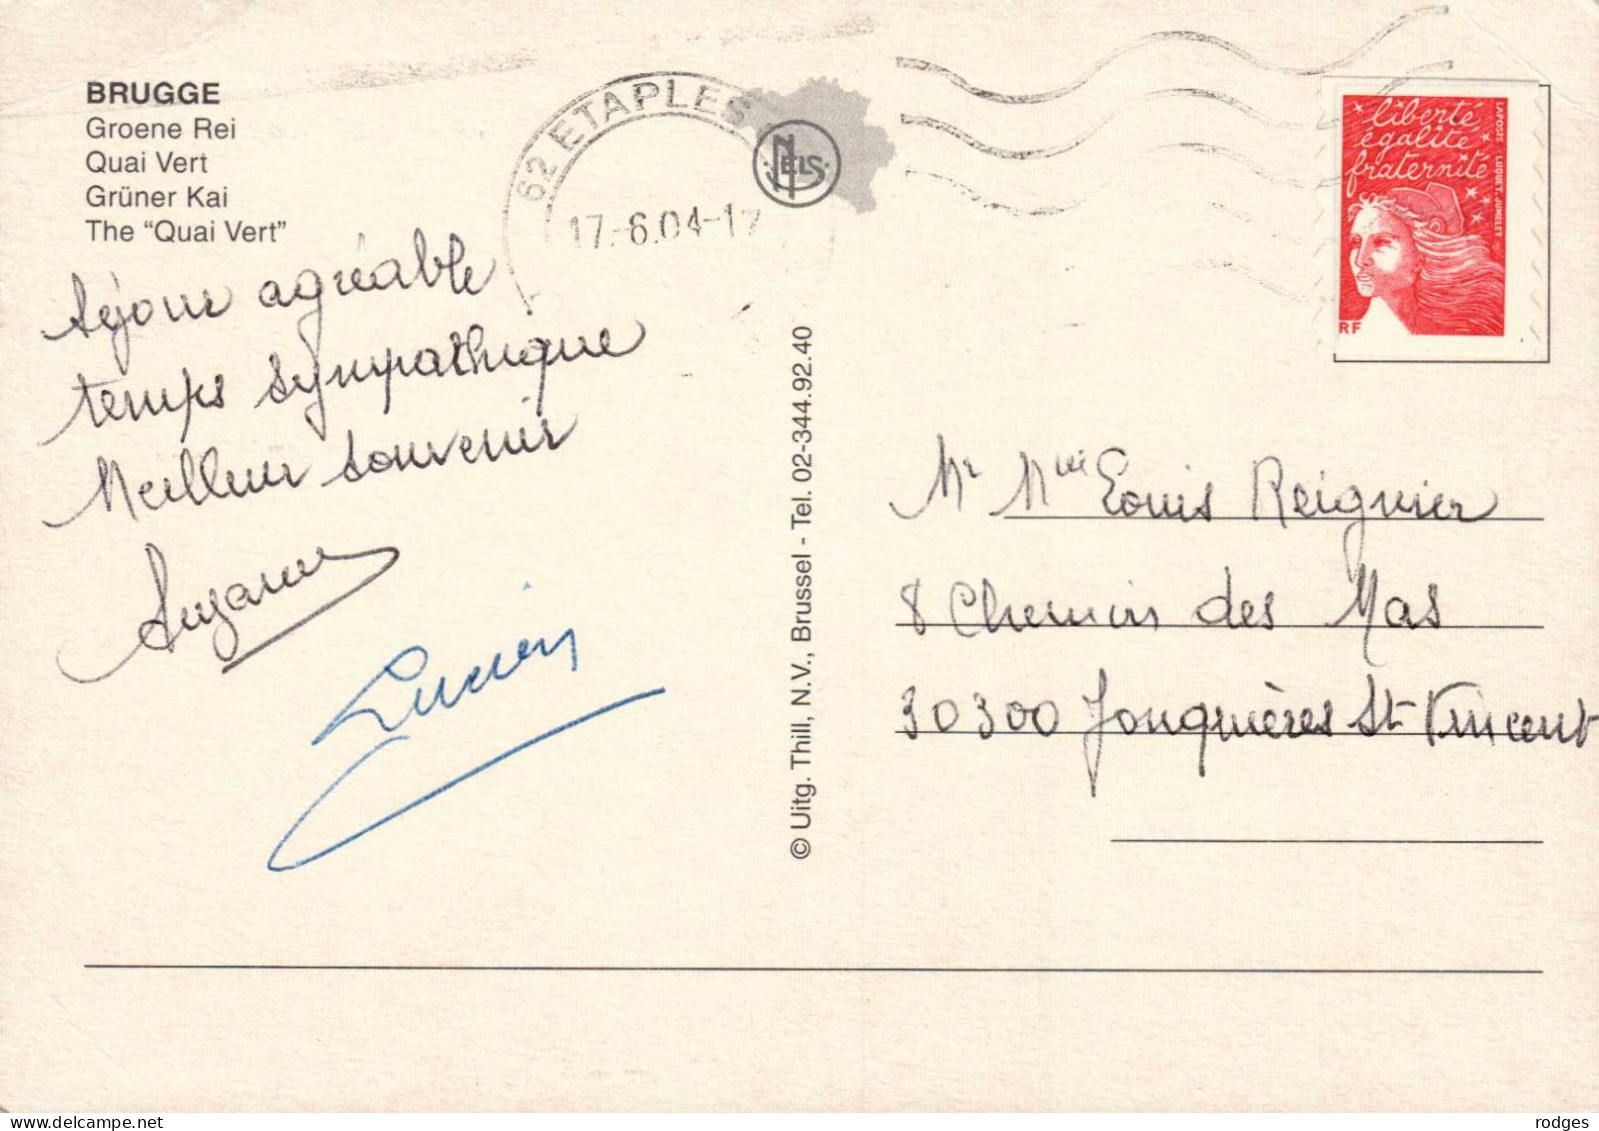 BRUGGE
Groene Rei
Quai Vert
Grüner Kai
The "Quai Vert"
62 ETAPLES
17-6.04-17
NELS
liberté
égalité
fraternité
LAPOSTE LUQUET, JUMELET
RF
Séjour agréable
temps sympathique
Meilleur souvenir
Suzanne
Lucien
© Uitg. Thill, N.V., Brussel - Tel. 02-344.92.40
Mr Mme Louis Reignier
8 Chemin des Mas
30300 Jonquières St Vincent
rodges